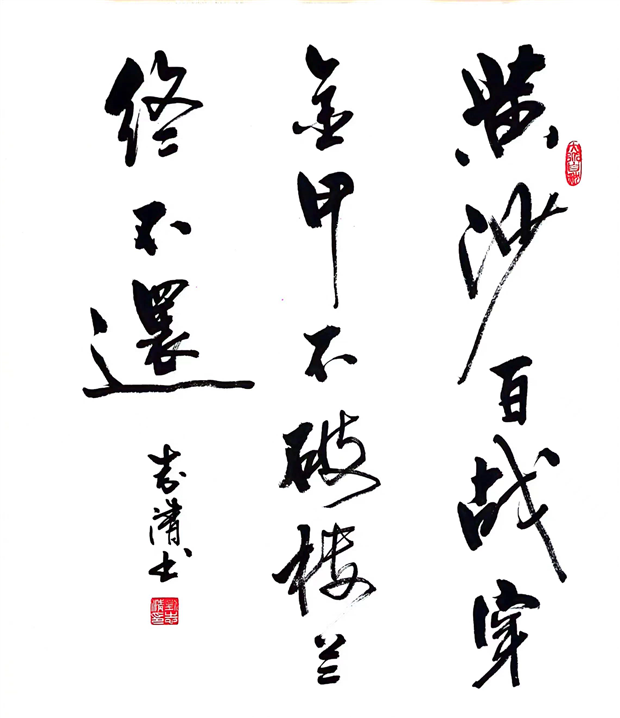 黄沙百战穿
金甲不破楼兰
终不還
志清书